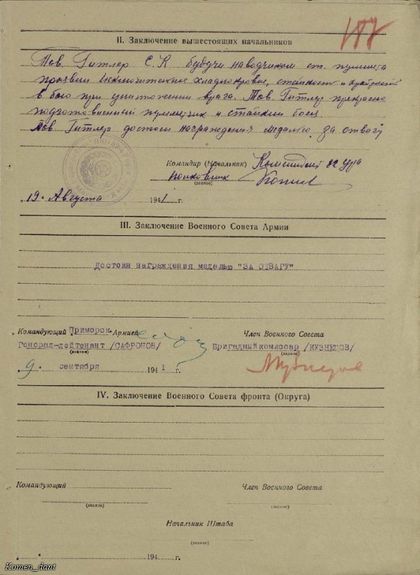 II. Заключение вышестоящих начальников
Тов. Гитлер С.К. будучи наводчиком ст. пулемета
проявил хладнокровие, стойкость и
в бою при уничтожении врага. Тов. Гитлер прекрасно
подготовленный пулеметчик и стойкий боец.
Тов. Гитлер достоин награждения медалью за отвагу
Командир (Начальник) Комендант
полковник
19 Августа 1941 г.
III. Заключение Военного Совета Армии
Достоин награждения медалью "ЗА ОТВАГУ"
Командующий Приморск. Армией
Член Военного Совета
Генерал-лейтенант /САФРОНОВ/
Бригадный комиссар /КУЗНЕЦОВ/
(звание)
(звание)
9 сентября 1941 г.
IV. Заключение Военного Совета фронта (Округа)
Командующий
Член Военного Совета
(звание)
(звание)
Начальник Штаба
(звание)
194 г.
Komen_dant